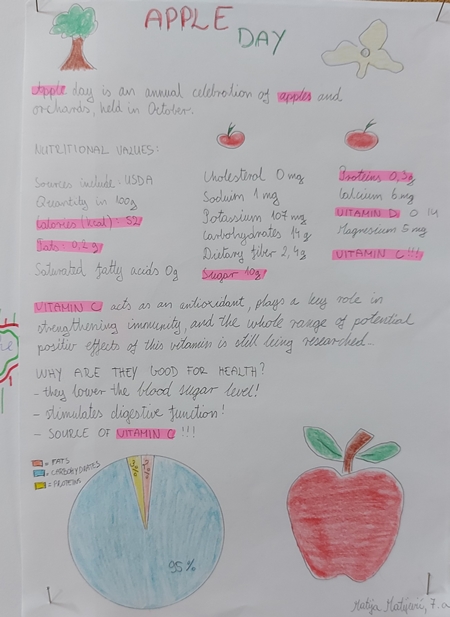 APPLE
DAY
Apple day is an annual celebration of apples and
orchards, held in October.
NUTRITIONAL VALUES:
Sources include: USDA
Quantity in 100g
Calories (kcal): 52
Fats: 0,2 g
Saturated fatty acids 0g
Cholesterol 0 mg
Sodium 1 mg
Potassium 107 mg
Carbohydrates 14 g
Dietary fiber 2,4g
Sugar 10g
Proteins 0,3g
Calcium 6 mg
VITAMIN D 0 IU
Magnesium 5 mg
VITAMIN C!!!
VITAMIN C acts as an antioxidant, plays a key role in
strengthening immunity, and the whole range of potential
positiv effects of this vitamin is still being researched...
WHY ARE THEY GOOD FOR HEALTH?
- they lower the blood sugar level!
- stimulates digestive function!
- SOURCE OF VITAMIN C !!!
= FATS
= CARBOHYDRATES
= PROTEINS
95%
Matija 7.a